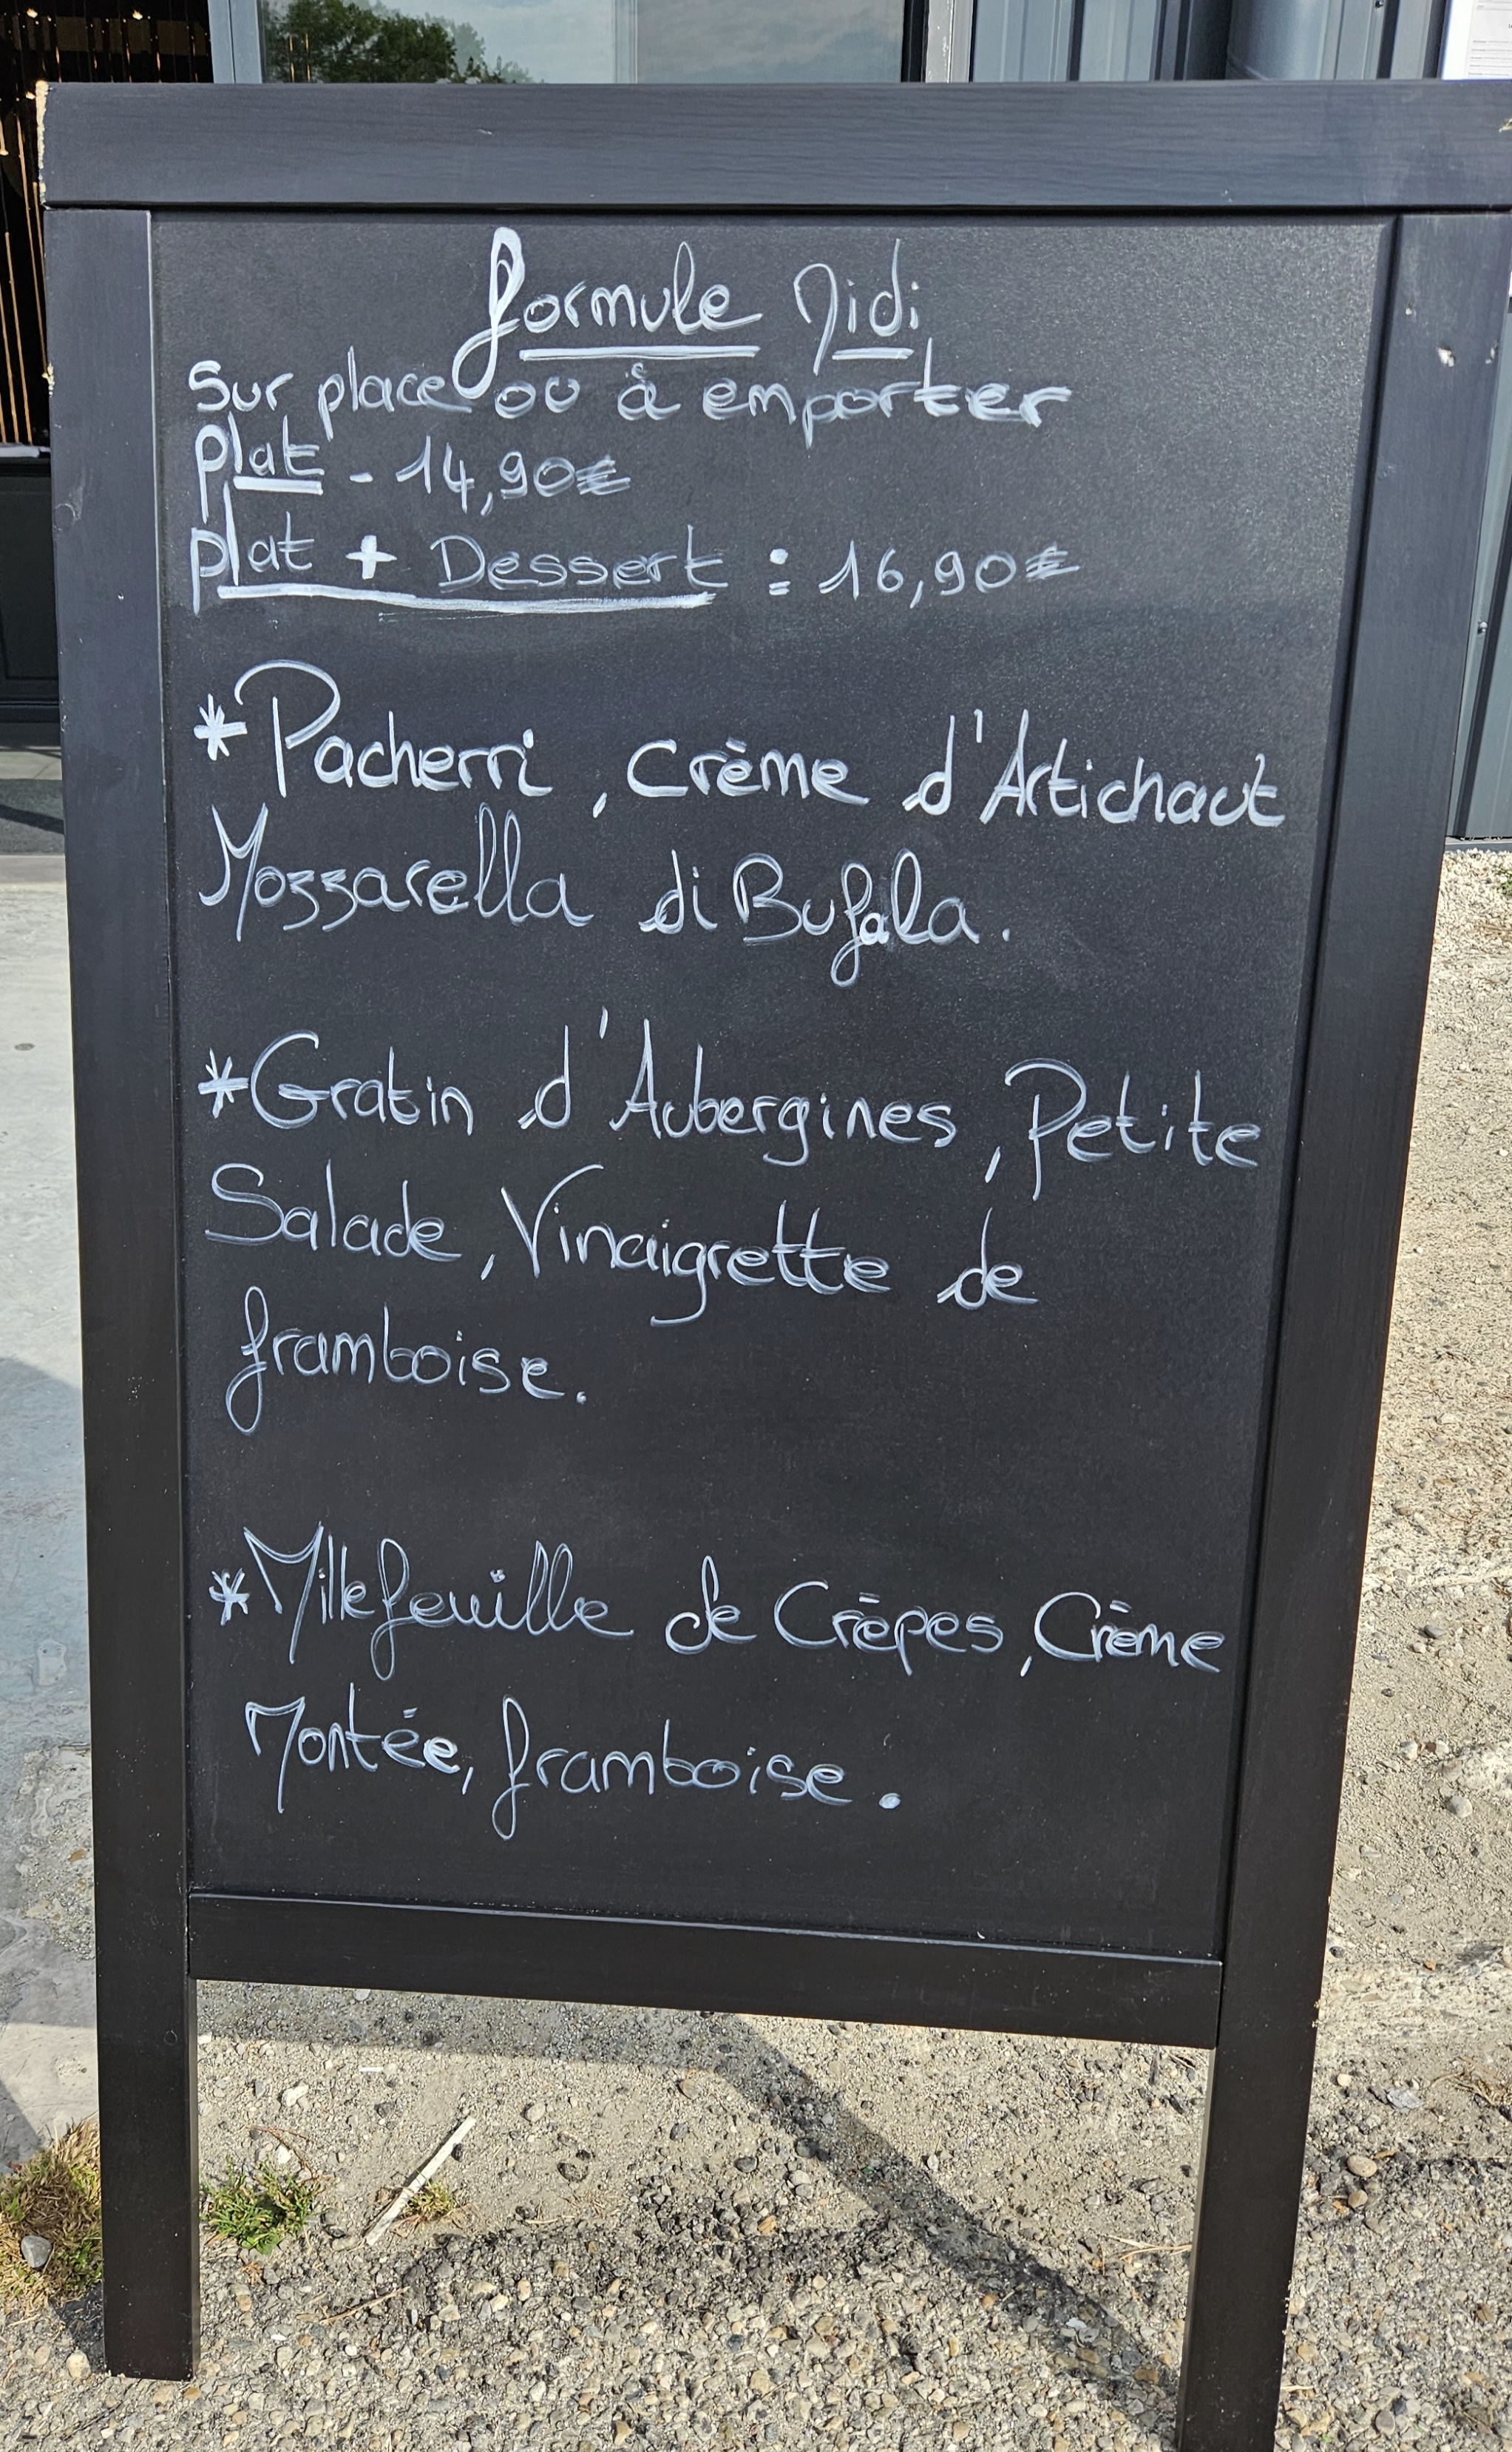 formule Midi
Sur place ou à emporter
plat - 14,90€
plat + Dessert : 16,90€
*Pacherri, Crème d'Artichaut
Mozzarella di Bufala.
*Gratin d'Aubergines, Petite
Salade, Vinaigrette de
framboise.
*Millefeuille de Crêpes, Crème
Montée, framboise.